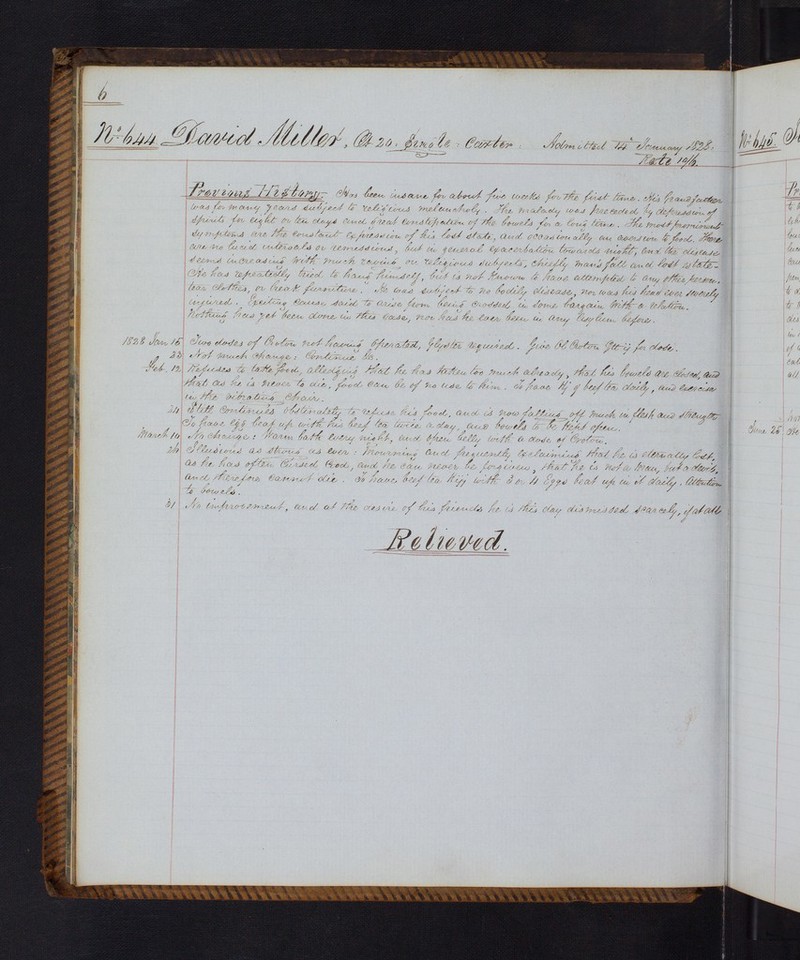 6
No. 644 David Miller, Æt 20. Single. Carter. Admitted 14th January 1828.
Rate 10/6.
Previous History. Has been insane for about five weeks for the first time. His Grandfather
was for many years subject to religious melancholy. The malady was preceded by depression of
spirits for eight or ten days and great constipation of the bowels for a long time. The most prominent
symptoms are the constant expression of his lost state, and occasionally an aversion to food. There
are no lucid intervals or remissions, but in general exacerbation towards night, and the disease
seems increasing with much raving on religious subjects, chiefly man's fall and lost estate.
He has repeatedly tried to hang himself, but is not known to have attempted to any other person,
tear clothes, or break furniture. He was subject to no bodily disease, nor was his head ever severely
injured. Exciting cause said to arise from being crossed in some bargain with a relation.
Nothing has yet been done in this case, nor has he ever been in any Asylum before.
1828 Jan. 16 Two doses of Croton not having operated, Glyster required. Give Ol Croton for dose.
22 Not much change: Continue
Feb. 12 Refuses to take food, alledging that he has taken too much already, that his bowels are closed, and
that as he is never to die, food can be of no use to him. To have of beef tea daily, and exercise
in the vibrating chair.
24 Still continues obstinately to refuse his food, and is now falling off much in flesh and strength
To have egg beat up with his beef tea twice a day, and bowels to be kept open.
March 14 No change: Warm bath every night, and open belly with a dose of Croton.
26 Illusions as strong as ever: Mourning and frequently exclaiming that he is eternally lost,
as he has often cursed God, and he can never be forgiven, that he is not a man, but a devil,
and therefore cannot die. To have beef tea with 3 or 4 Eggs beat up in it daily. Attention
to bowels.
31 No improvement, and at the desire of his friends he is this day dismissed scarcely, if at all
Relieved.
No. 645
June 25